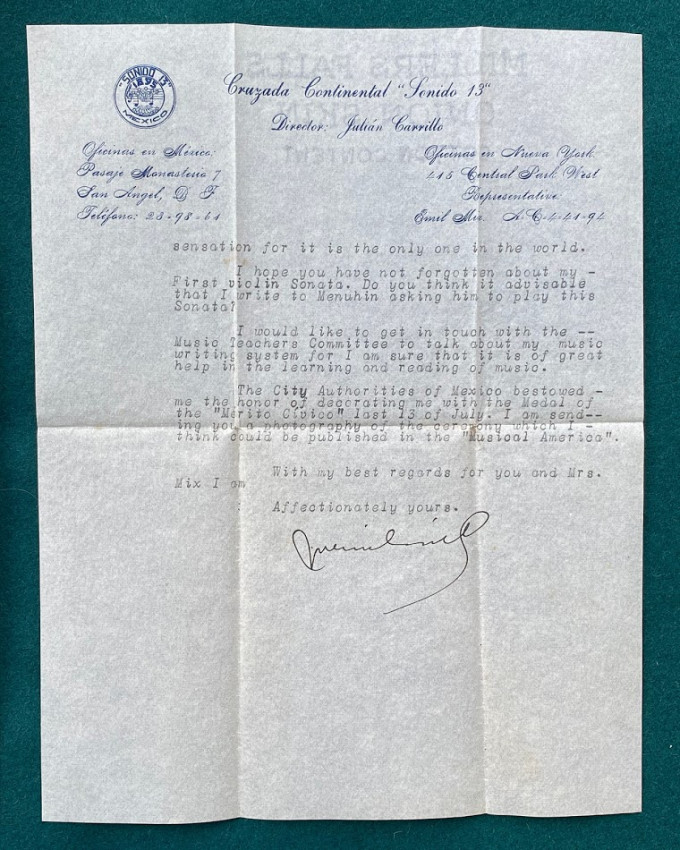 "SONIDO 13"
1895
MEXICO
Cruzada Continental "Sonido 13"
Director: Julián Carrillo
Oficinas en México:
Pasaje Monasterio 7
San Angel, D F
Teléfono: 23-98-61
Oficinas en Nueva York
415 Central Park West
Representative
Emil Mix. A.C-4-41-94
sensation for it is the only one in the world.
I hope you have not forgotten about my -
First violin Sonata. Do you think it advisable
that I write to Menuhin asking him to play this
Sonata?
I would like to get in touch with the --
Music Teachers Committee to talk about my music
writing system for I am sure that it is of great
help in the learning and reading of music.
The City Authorities of Mexico bestowed -
me the honor of decorating me with the Medal of
the "Mérito Cívico" last 13 of July. I am send--
ing you a photography of the ceremony which I -
think could be published in the "Musical America".
With my best regards for you and Mrs.
Mix I am
: Affectionately yours.